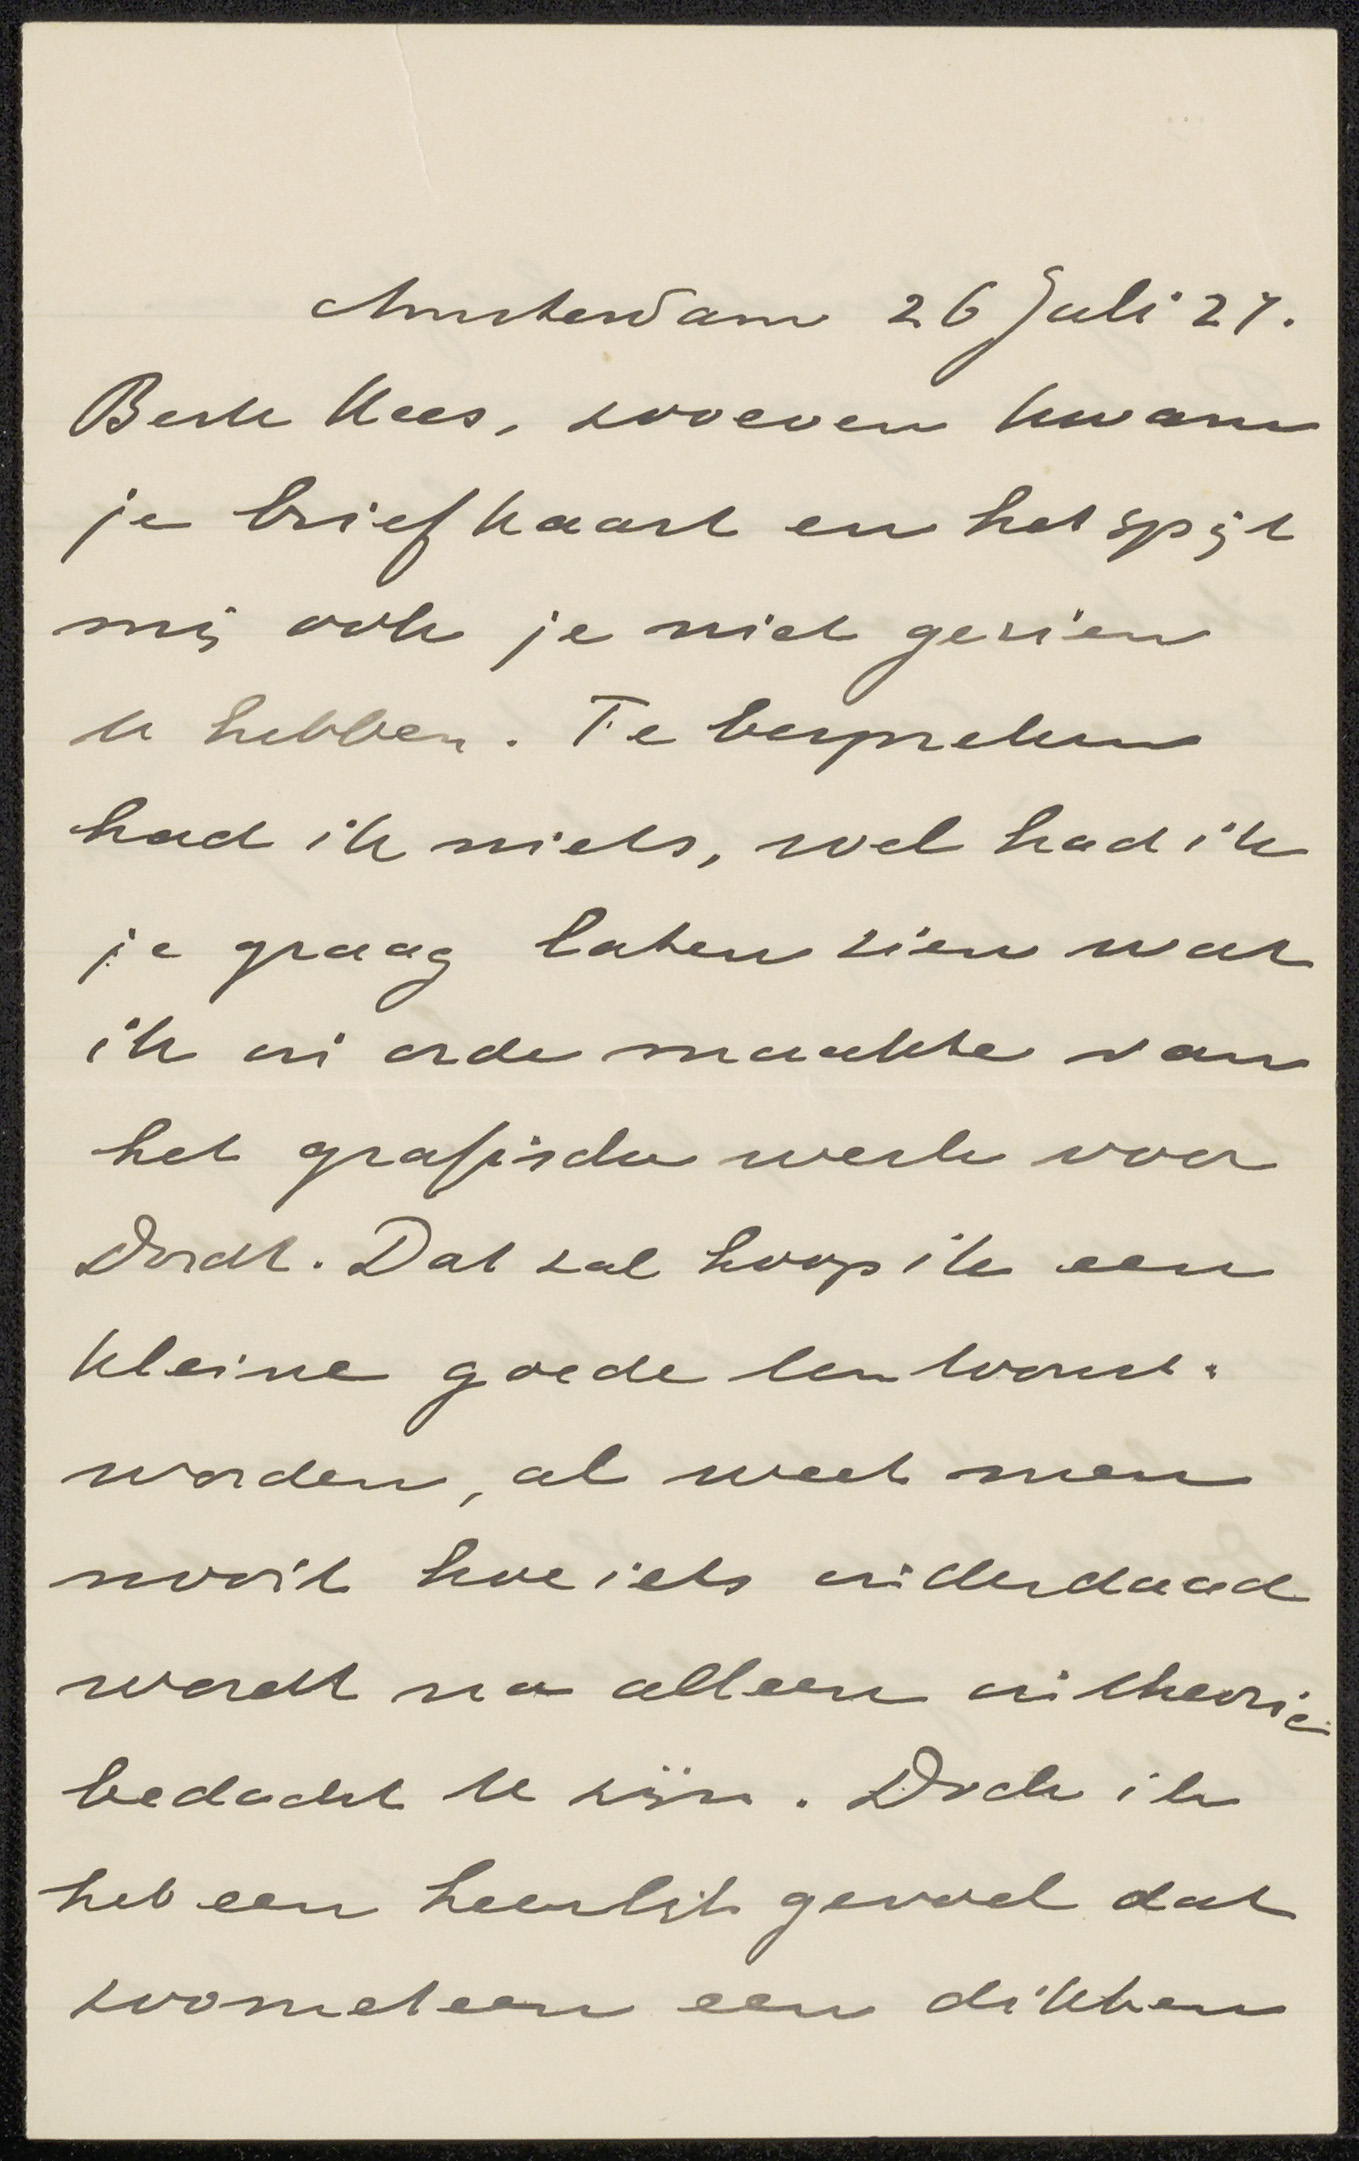 Amsterdam 26 Juli 27.
Beste Kees, zooeven kwam
je briefkaart en het spijt
mij ook je niet gezien
te hebben. Te bespreken
had ik niets, wel had ik
je graag laten zien wat
ik in orde maakte van
het grafische werk voor
Dordt. Dat zal hoop ik een
kleine goede tentoonst.
worden, al weet men
nooit hoe iets inderdaad
wordt na alleen in theorie
bedacht te zijn. Doch ik
heb een heerlijk gevoel dat
zoometeen een dikken